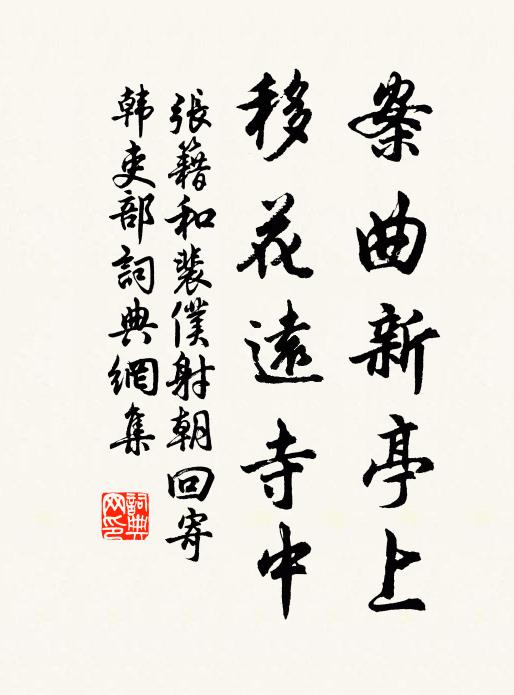 案曲新亭上
移花遠寺中
張籍和裴僕射朝回寄
韩吏部詞典網集
詞典网印